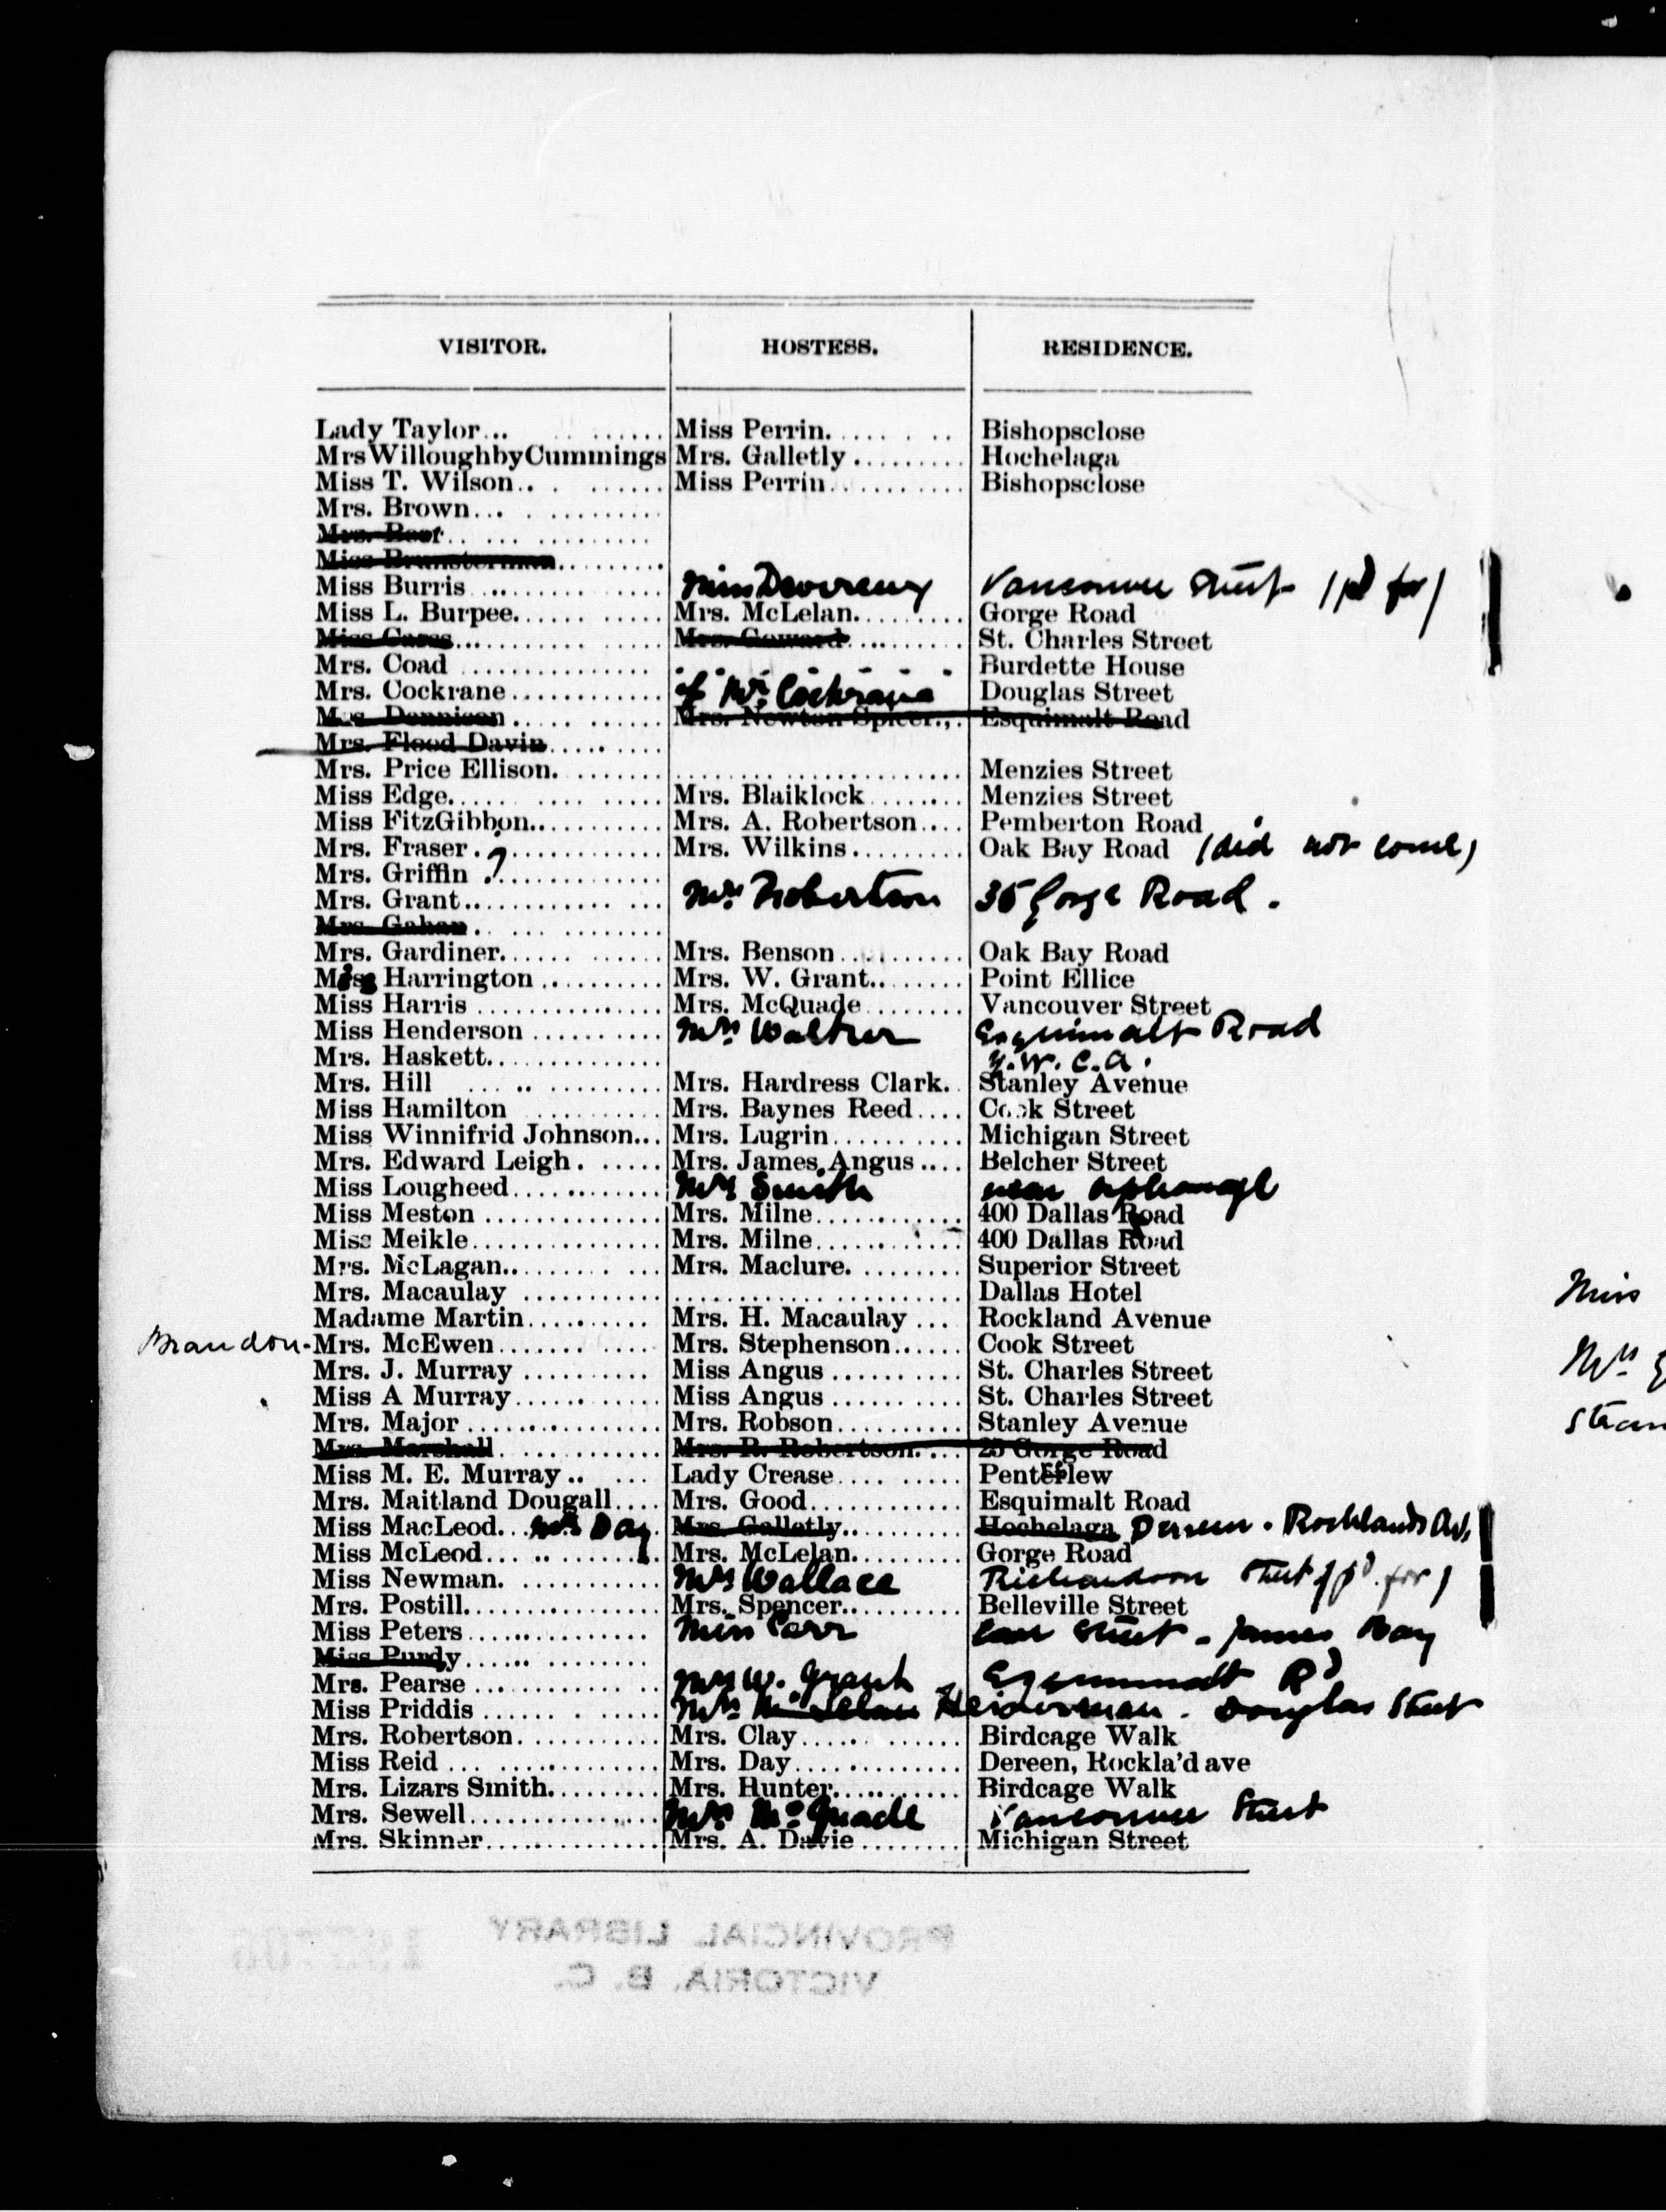 VISITOR. HOSTESS. RESIDENCE.
Lady Taylor... ...... Miss Perrin..... . .. Bishopsclose
MrsWilloughbyCummings Mrs. Galletly ......... Hochelaga
Miss T. Wilson.. . ...... Miss Perrin.......... Bishopsclose
Mrs. Brown... . ..........
Mrs. Beet.. ... .........
Miss .........
Miss Burris ............ Miss Devereux Vancouver Street (pd for)
Miss L. Burpee...... ..... Mrs. McLelan......... Gorge Road
Miss Cares............ Mrs. Goward .......... St. Charles Street
Mrs. Coad ............... Burdette House
Mrs. Cockrane........... of Mr. Cockrane Douglas Street
Mrs. Dennison........... Mrs. Newton Spicer.,. Esquimalt Road
Mrs. Flood Davin..... ....
Mrs. Price Ellison. ....... ...................... Menzies Street
Miss Edge..... .... ..... Mrs. Blaiklock........ Menzies Street
Miss FitzGibbon.......... Mrs. A. Robertson.... Pemberton Road
Mrs. Fraser . ?........... Mrs. Wilkins......... Oak Bay Road (did not come)
Mrs. Griffin ............
Mrs. Grant............ ... Mrs. Robertson 35 Gorge Road.
Mrs. Gahan. ... ........
Mrs. Gardiner...... ...... Mrs. Benson.......... Oak Bay Road
Miss Harrington .......... Mrs. W. Grant........ Point Ellice
Miss Harris .............. Mrs. McQuade........ Vancouver Street
Miss Henderson .......... Mrs. Walker Esquimalt Road
Mrs. Haskett............. Y.W.C.A.
Mrs. Hill ... .. .......... Mrs. Hardress Clark. Stanley Avenue
Miss Hamilton .......... Mrs. Baynes Reed.... Cook Street
Miss Winnifrid Johnson... Mrs. Lugrin.......... Michigan Street
Mrs. Edward Leigh. ..... Mrs. James Angus.... Belcher Street
Miss Lougheed........... Mrs Smith near orphanage
Miss Meston .............. Mrs. Milne............ 400 Dallas Road
Miss Meikle............... Mrs. Milne............ 400 Dallas Road
Mrs. McLagan......... ... Mrs. Maclure. ........ Superior Street
Mrs. Macaulay ........... ...................... Dallas Hotel
Madame Martin.......... Mrs. H. Macaulay ... Rockland Avenue
Brandon - Mrs. McEwen....... .... Mrs. Stephenson...... Cook Street
Mrs. J. Murray .......... Miss Angus .......... St. Charles Street
Miss A Murray........... Miss Angus .......... St. Charles Street
Mrs. Major ............... Mrs. Robson.......... Stanley Avenue
Mrs. Marshall. .......... Mrs. R. Robertson.... 25 Gorge Road
Miss M. E. Murray.. ... Lady Crease.......... Pentrelew
Mrs. Maitland Dougall.... Mrs. Good............ Esquimalt Road
Miss MacLeod... Mrs Day. Mrs. Galletly.......... Hochelaga Dereen. Rocklands Av.
Miss McLeod............. Mrs. McLelan......... Gorge Road
Miss Newman. ........... Mrs Wallace Richardson Street (pd. for)
Mrs. Postill................ Mrs. Spencer.......... Belleville Street
Miss Peters .............. Miss Carr Carr Street - James Bay
Miss Purdy...... ........
Mrs. Pearse .............. Mrs W. Grant Esquimalt Rd
Miss Priddis ....... ..... Mrs. McLelan Heisterman. Douglas Street
Mrs. Robertson........... Mrs. Clay............. Birdcage Walk
Miss Reid ... ............ Mrs. Day.............. Dereen, Rockla'd ave
Mrs. Lizars Smith......... Mrs. Hunter........... Birdcage Walk
Mrs. Sewell............... Mrs. McQuade Vancouver Street
Mrs. Skinner.............. Mrs. A. Davie ........ Michigan Street
Miss
Mrs
PROVINCIAL LIBRARY
VICTORIA, B. C.